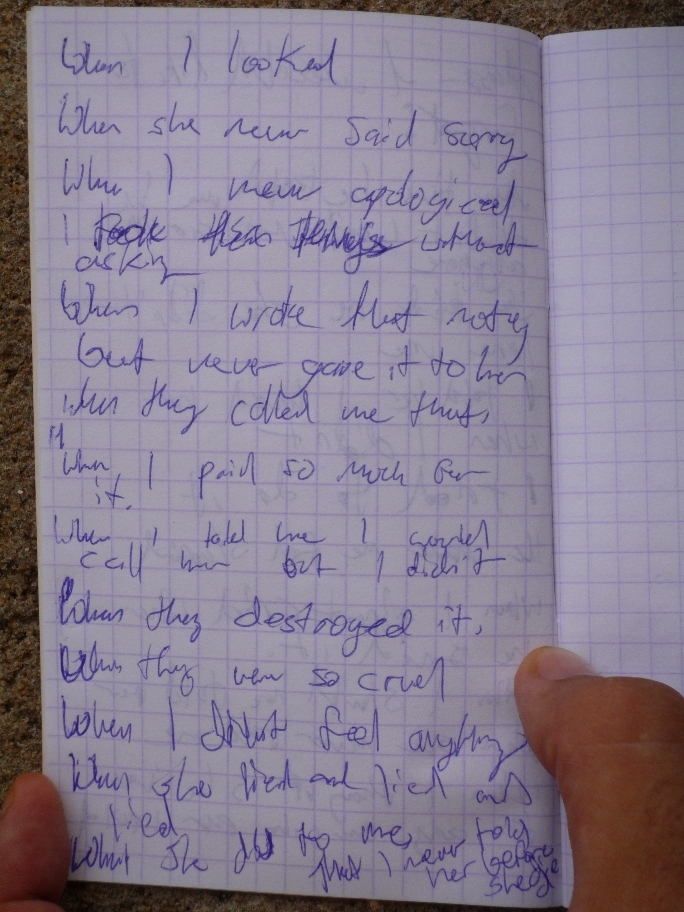 When I looked
When she never said sorry
When I never apologised
I took these things without
asking
When I wrote that note,
but never gave it to her
When they called me that,
When I paid so much for
it.
When I told her I would
call her but I didn't
When they destroyed it,
When they were so cruel
When I didn't feel anything
When she lied and lied and
lied
What she did to me,
that I never told
her before
she